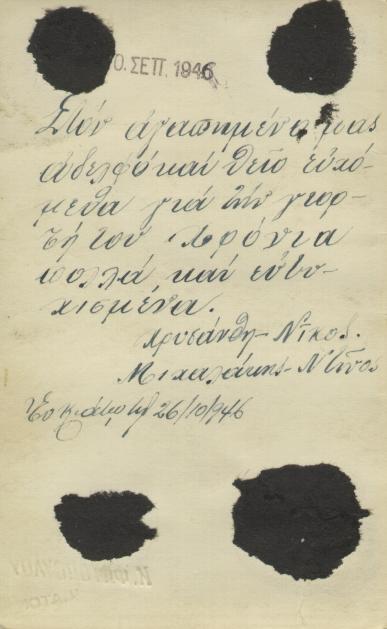 0. ΣΕΠ. 1946
Στόν ἀγαπημένο μας
ἀδελφό καί θεῖο εὐχό-
μεθα γιά τήν γιορ-
τή του Χρόνια
πολλά καί εὐτυ-
χισμένα.
Χρυσάνθη - Νῖκος.
Μιχαλάκης - Ντῖνος
26/10/946